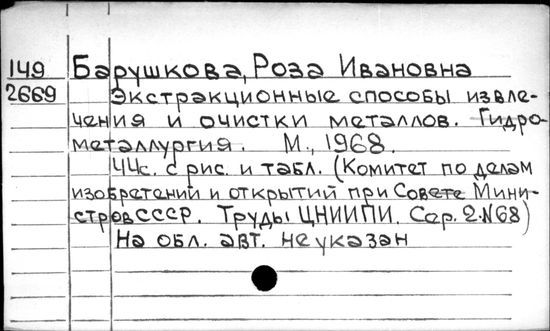 149 Барушкова, Роза Ивановна
2669 Экстракционные способы извле-
чения и очистки металлов. Гидро-
металлургия. М., 1968.
44с. с рис. и табл. (Комитет по делам
изобретений и открытий при Совете Мини-
стров СССР. Труды ЦНИИПИ. Сер. 2. №68)
На обл. авт. не указан